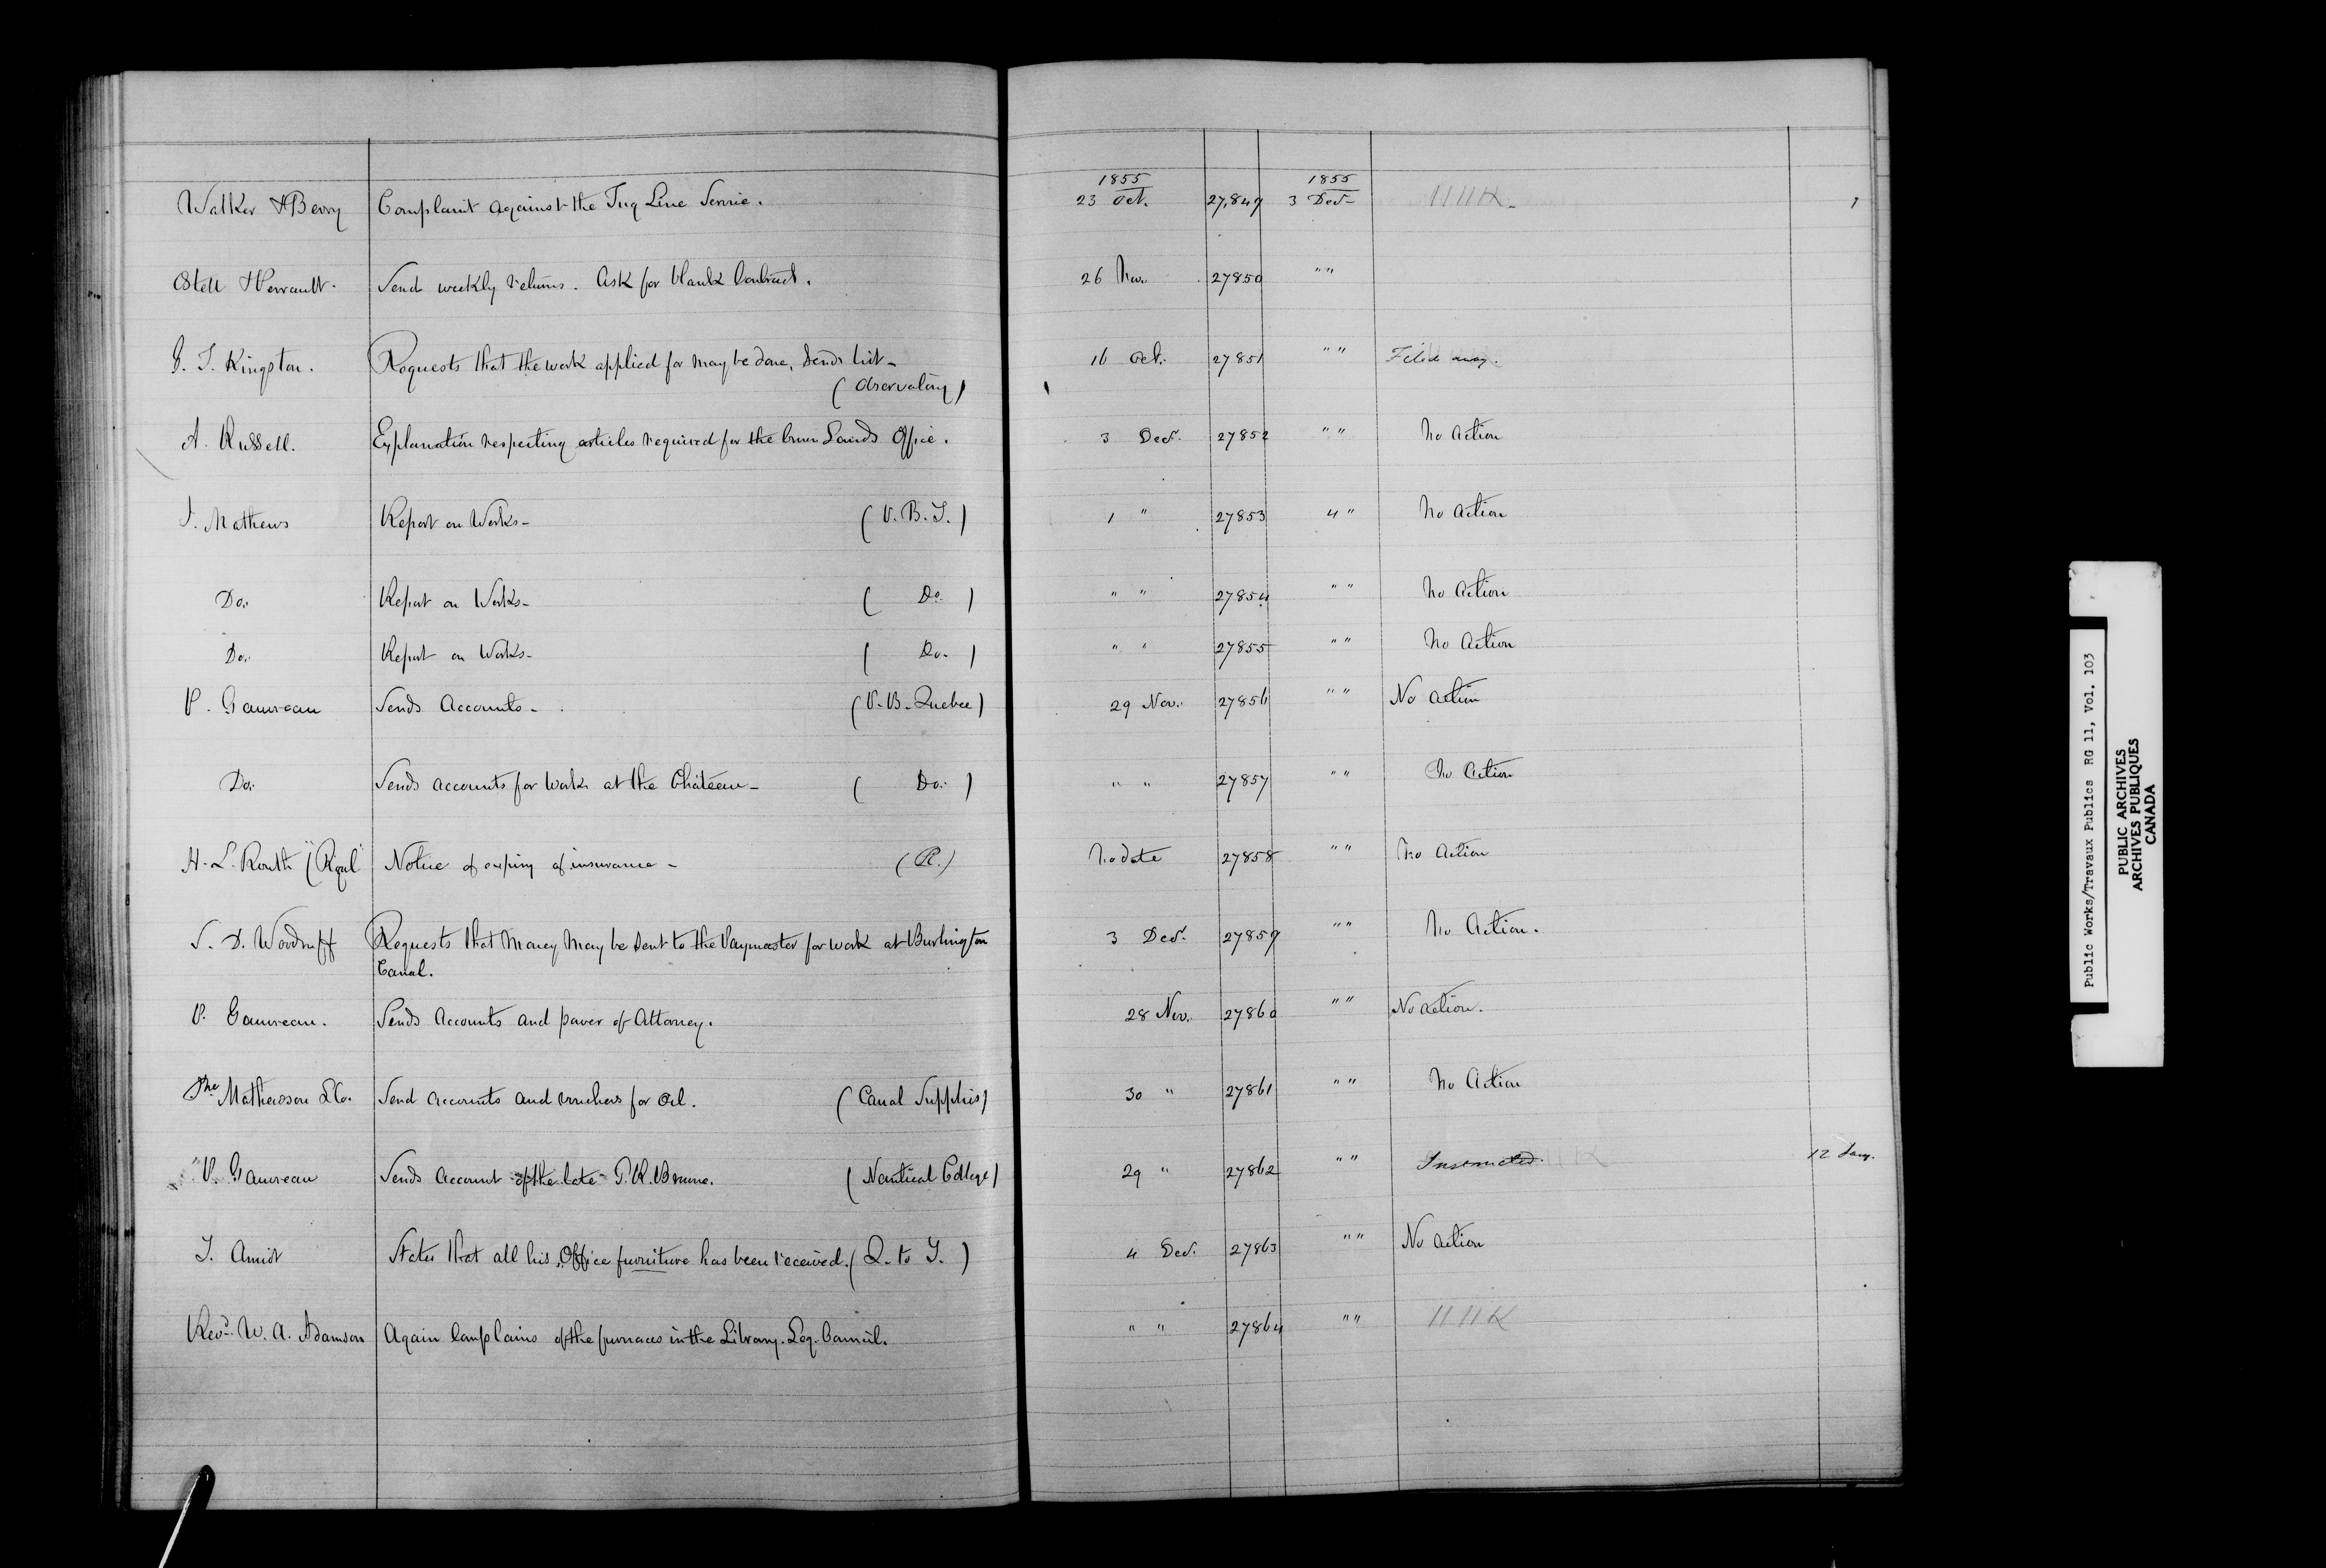 1855 1855
Walker & Berry Complaint against the Tug Line Service. 23 Oct. 27,849 3 Decr
Ostell & Perrault. Send weekly returns. Ask for blank Contract. 26 Nov. 27850 " "
G. T. Kingston. Requests that the work applied for may be done, Sends list - 16 Oct. 27851 " " Filed away.
(Observatory)
A. Russell. Explanation respecting articles required for the Crown Lands Office. 3 Decr. 27852 " " No Action
J. Mathews Report on Works - (P. B. T.) 1 " 27853 4 " No Action
Do. Report on Works - ( Do. ) " " 27854 " " No Action
Do. Report on Works - ( Do. ) " " 27855 " " No Action
P. Gauvreau Sends Accounts - (P. B. Quebec) 29 Nov. 27856 " " No action
Do. Sends accounts for work at the Château - ( Do. ) " " 27857 " " No Action
H. L. Routh "(Royl" Notice of expiry of insurance - (R.) No date 27858 " " No Action
S. D. Woodruff Requests that Money may be sent to the Paymaster for work at Burlington 3 Decr. 27859 " " No Action.
Canal.
P. Gauvreau. Sends Accounts and power of Attorney. 28 Nov. 27860 " " No action.
Mathewson & Co. Send accounts and vouchers for Oil. (Canal Supplies) 30 " 27861 " " No Action
P. Gauvreau Sends Account of the late P. R. Browne. (Nautical College) 29 " 27862 " " Instructed 12 Jany.
T. Amiot States that all his Office furniture has been received. (Q. to T.) 4 Decr. 27863 " " No action
Revd. W. A. Adamson Again Complains of the furnaces in the Library. Leg. Council. " " 27864 " "
Public Works/Travaux Publics RG 11, Vol. 103
PUBLIC ARCHIVES
ARCHIVES PUBLIQUES
CANADA